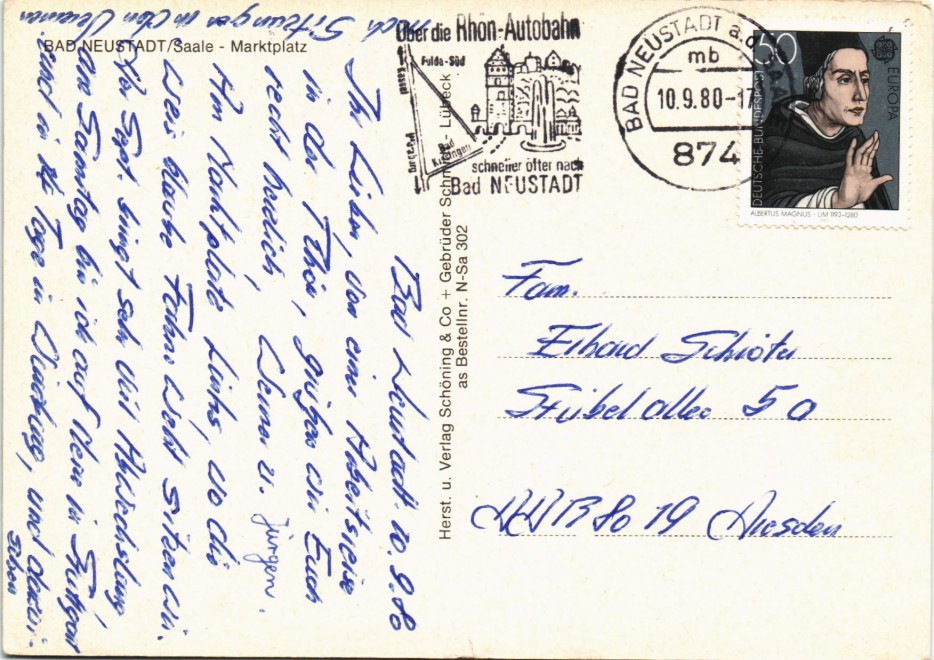 BAD NEUSTADT/Saale - Marktplatz
Über die Rhön-Autobahn
Fulda-Süd
Kassel
Würzburg
Bad Kissingen
schneller öfter nach
Bad NEUSTADT
BAD NEUSTADT a.d.
mb
10.9.80-17
874
50
DEUTSCHE BUNDESPOST
EUROPA
ALBERTUS MAGNUS · UM 1193-1280
Fam.
Erhard Schröter
Stübelallee 50
DDR 8019 Dresden
Herst. u. Verlag Schöning & Co + Gebrüder Schmidt - Lübeck
as Bestellnr. N-Sa 302
Bad Neustadt. 10.9.80
Ihr Lieben, von einer Arbeitsreise
in der Rhön, grüßen wir Euch
recht herzlich, Werner u. Jürgen.
Am Marktplatz links, wo die
weis blaue Fahne weht sitzen wir.
Der Sept. bringt sehr viel Abwechslung
am Samstag bin ich auf in Stuttgart
und in 14 Tage in Würzburg, und dazwi-
schen
noch Sitzungen in den